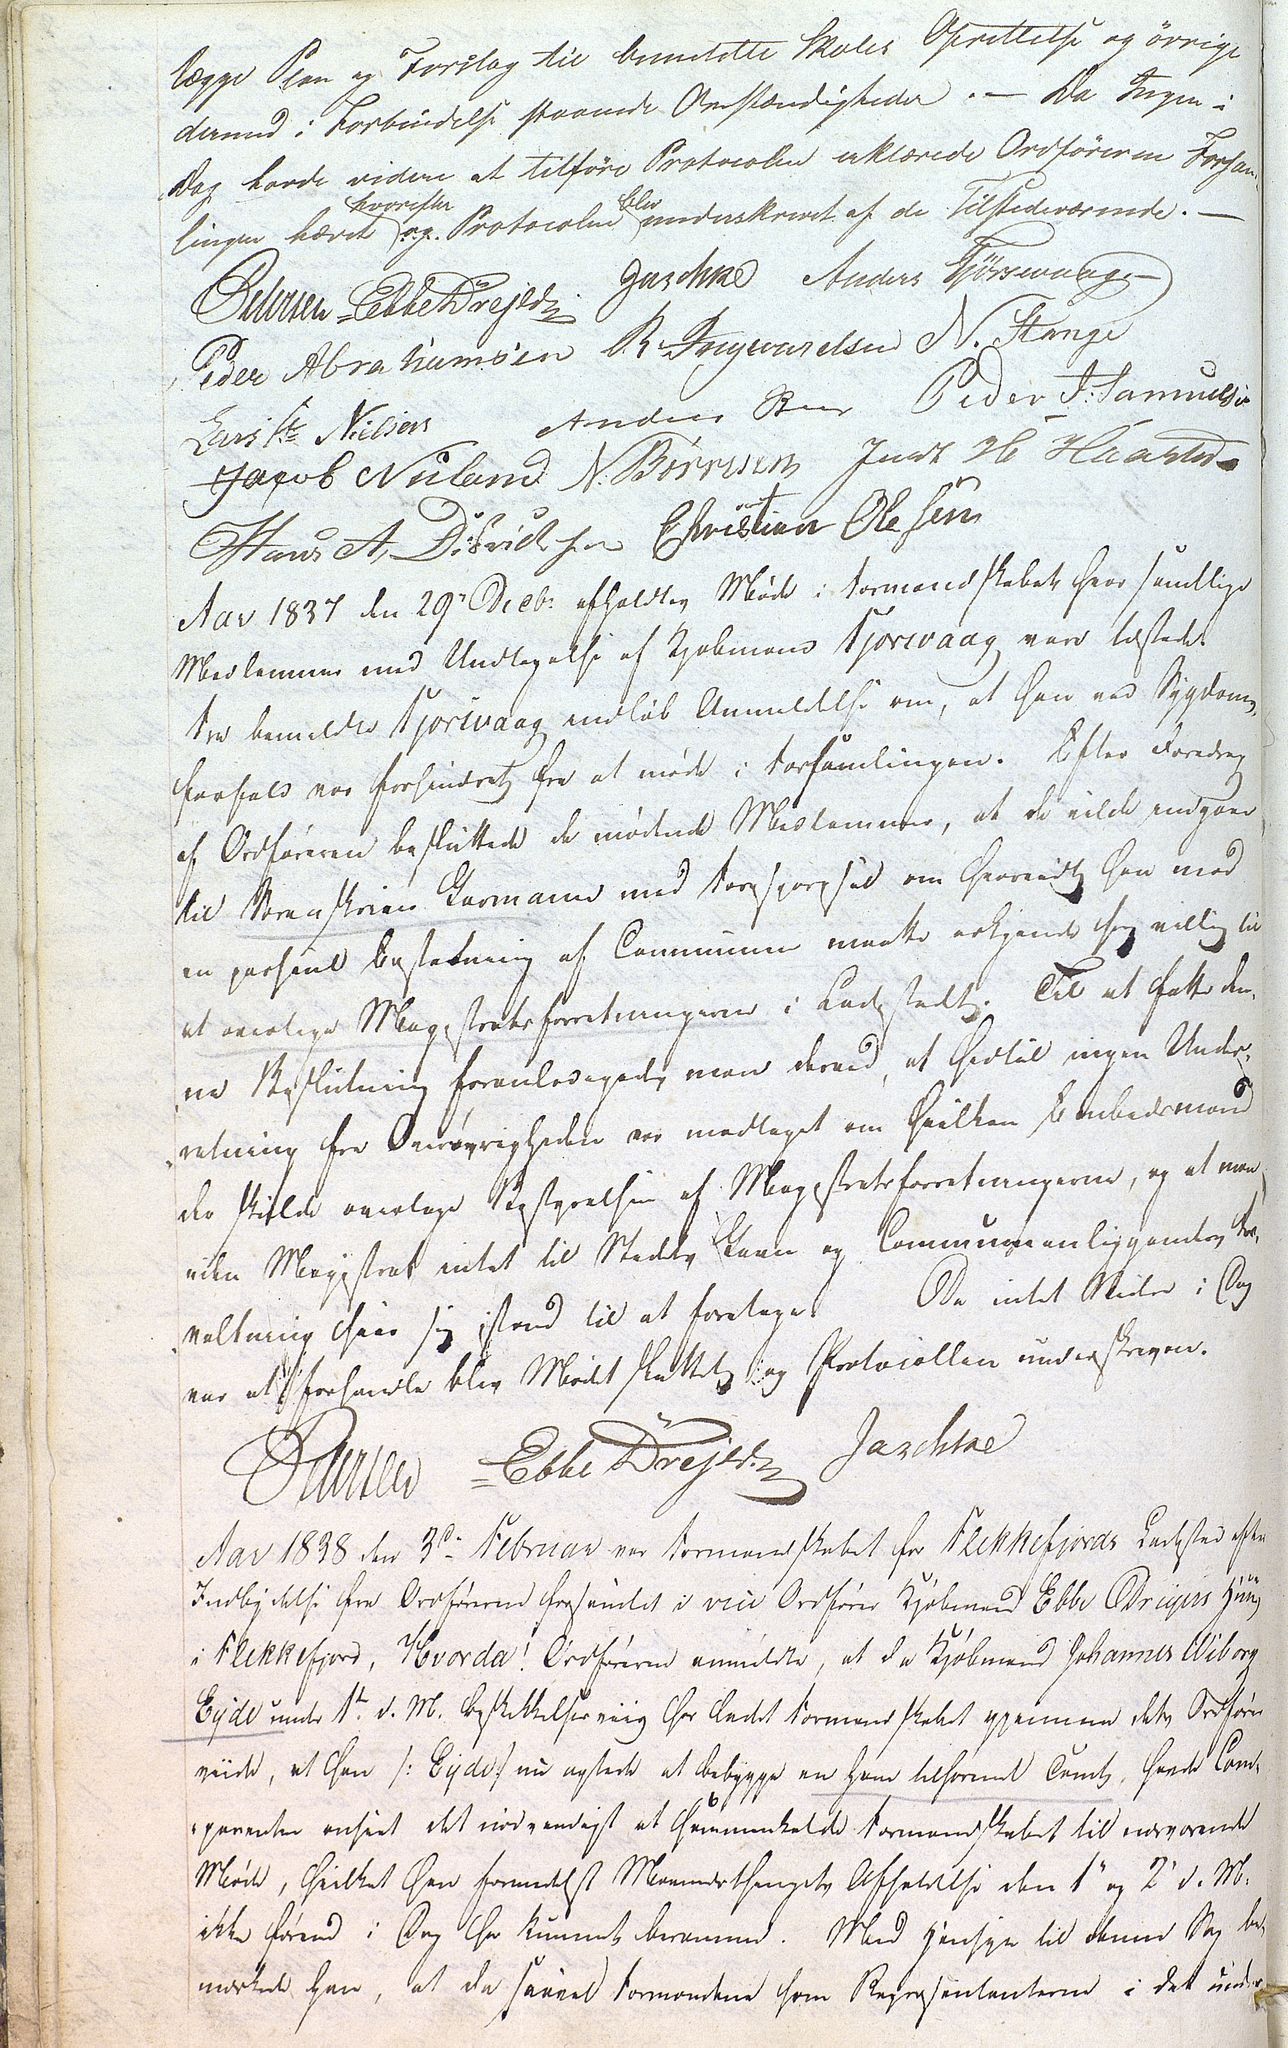 lægge Plan og Forslag til bemeldte Skoles Oprettelse og övrige
dermed i Forbindelse staaende Omstændigheder. — Da Ingen i
Dag havde videre at tilföre Protocolen erklærede Ordföreren Forsam-
lingen hævet hvorefter og Protocolen blev underskrevet af de Tilstedeværende. —
Petersen Ebbe Drejer Jaschke Anders Tjörsvaag
Peder Abrahamsen R Ingevaldsen N. Stange
Lars Nielsen Anders Beer Peder J: Samuelsen
Jacob Nuland N. Börresen H Haastad
Hans A, Didrichsen Christian Olesen
Aar 1837 den 29de Decbr afholdtes Møde i Formandskabet hvor samtlige
Medlemmer med Undtagelse af Kjøbmand Tjorsvaag vare tilstede.
Fra bemeldte Tjorsvaag indløb Anmeldelse om, at han ved Sygdoms
forfald var forhindret fra at møde i Forsamlingen. Efter Foredrag
af Ordføreren besluttede de mødende Medlemmer, at de vilde indgaae
til Sorenskriver Garmann med Forespørgsel om hvorvidt han mod
en passende Erstatning af Communen maatte erkjende sig villig til
at overtage Magistratsforretningerne i Ladestedet. Til at fatte den-
ne Beslutning foranledigedes man derved, at hidtil ingen Under-
retning fra Overøvrigheden var modtaget om hvilken Embedsmand
der skulde overtage Bestyrelsen af Magistratsforretningerne, og at man
uden Magistrat intet til Stedets Gavn og Communeanliggenders For-
valtning saae sig istand til at foretage. Da intet Videre i Dag
var at forhandle blev Mødet sluttet og Protocollen underskreven.
Petersen Ebbe Drejer Jaschke
Aar 1838 den 3de Februar var Formandskabet for Flekkefjords Ladested efter
Indbydelse fra Ordføreren forsamlet i vice Ordfører Kjøbmand Ebbe Dreyers Huus
i Flekkefjord, Hvorda! Ordføreren anmeldte, at da Kjøbmand Johannes Wiborg
Eyde under 1ste d. M. har ladet Formandskabet gjennem dets Ordfører
vide, at han /: Eyde :/ nu agtede at bebygge en ham tilhørende Tomt, havde Com-
parenten anseet det nødvendigt at sammenkalde Formandskabet til nærværende
Møde, hvilket han formedelst Maanedsthingets Afholdelse den 1ste og 2den d. M.
ikke førend i Dag har kunnet beramme. Med Hensyn til denne Sag be-
mærkede han, at da saavel Formændene som Repræsentanterne i det under